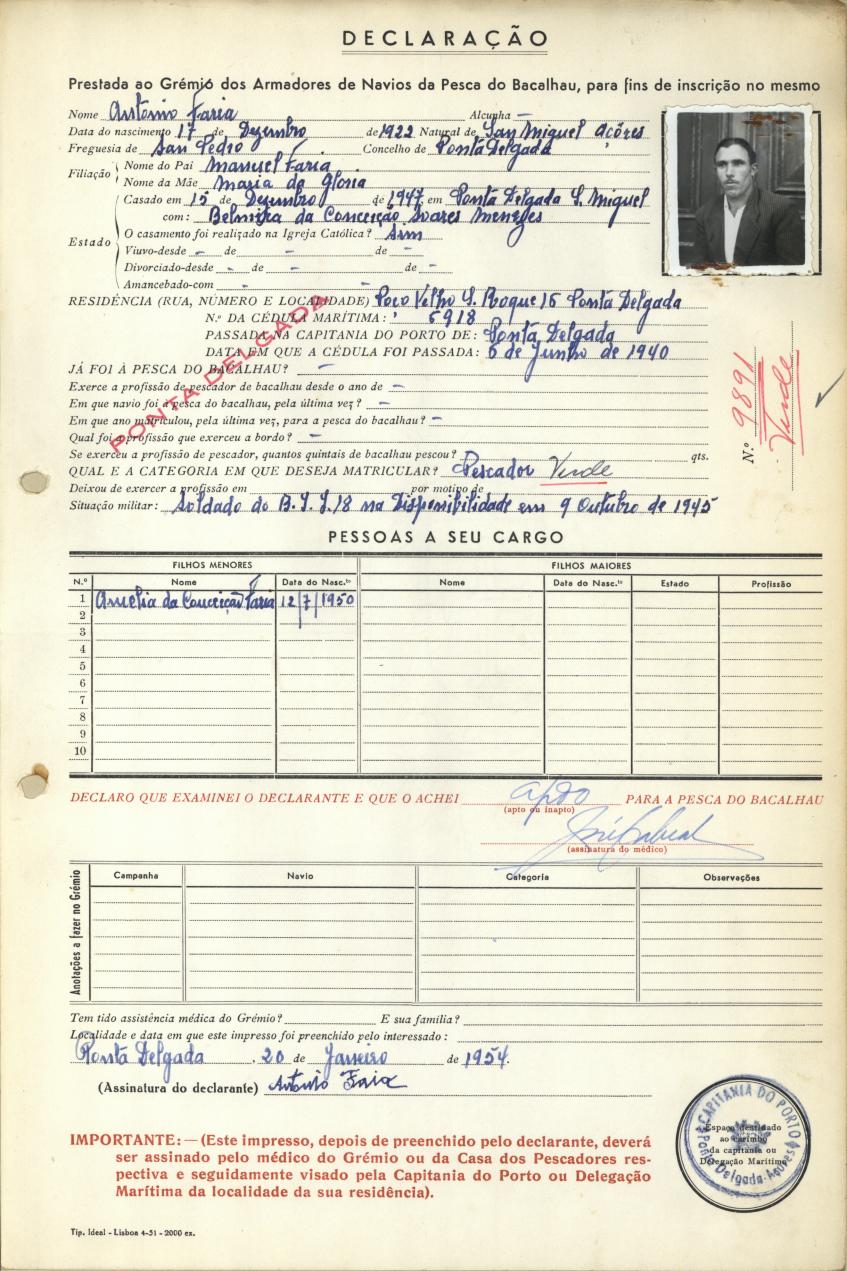 DECLARAÇÃO
Prestada ao Grémio dos Armadores de Navios da Pesca do Bacalhau, para fins de inscrição no mesmo
Nome António Faria Alcunha —
Data do nascimento 17 de Dezembro de 1922 Natural de San Miguel Açôres
Freguesia de San Pedro Concelho de Ponta Delgada
Filiação
Nome do Pai Manuel Faria
Nome da Mãe Maria da Gloria
Estado
Casado em 15 de Dezembro de 1947, em Ponta Delgada S. Miguel
com: Belmira da Conceição Soares Menezes
O casamento foi realizado na Igreja Católica? Sim
Viuvo-desde - de - de -
Divorciado-desde - de - de -
Amancebado-com - -
RESIDÊNCIA (RUA, NÚMERO E LOCALIDADE) Poco Velho S. Roque 16 Ponta Delgada
N.º DA CÉDULA MARÍTIMA: 5918
PASSADA NA CAPITANIA DO PORTO DE: Ponta Delgada
DATA EM QUE A CÉDULA FOI PASSADA: 6 de Junho de 1940
PONTA DELGADA
JÁ FOI À PESCA DO BACALHAU? -
Exerce a profissão de pescador de bacalhau desde o ano de -
Em que navio foi à pesca do bacalhau, pela última vez? -
Em que ano matriculou, pela última vez, para a pesca do bacalhau? -
Qual foi a profissão que exerceu a bordo? -
Se exerceu a profissão de pescador, quantos quintais de bacalhau pescou? qts.
QUAL E A CATEGORIA EM QUE DESEJA MATRICULAR? Pescador Verde
Deixou de exercer a profissão em por motivo de
Situação militar: Soldado do B. I. I./18 na Disponibilidade em 9 Outubro de 1945
N.º 9891
Verde
PESSOAS A SEU CARGO
FILHOS MENORES FILHOS MAIORES
N.º Nome Data do Nasc.to Nome Data do Nasc.to Estado Profissão
1 Amelia da Conceição Faria 12/7/1950
2
3
4
5
6
7
8
9
10
DECLARO QUE EXAMINEI O DECLARANTE E QUE O ACHEI apto PARA A PESCA DO BACALHAU
(apto ou inapto)
José Cabral
(assinatura do médico)
Anotações a fazer no Grémio
Campanha Navio Categoria Observações
Tem tido assistência médica do Grémio? E sua família?
Localidade e data em que este impresso foi preenchido pelo interessado:
Ponta Delgada, 20 de Janeiro de 1954.
(Assinatura do declarante) António Faria
CAPITANIA DO PORTO
Ponta Delgada-Açores
Espaço destinado
ao carimbo
da capitania ou
Delegação Marítima
IMPORTANTE: — (Este impresso, depois de preenchido pelo declarante, deverá
ser assinado pelo médico do Grémio ou da Casa dos Pescadores res-
pectiva e seguidamente visado pela Capitania do Porto ou Delegação
Marítima da localidade da sua residência).
Tip. Ideal - Lisboa 4-51 - 2000 ex.